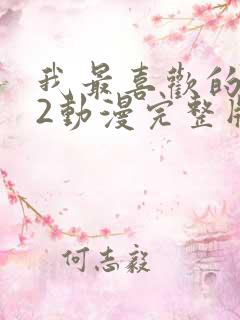 我最喜歡的
2動漫完整版
何志毅